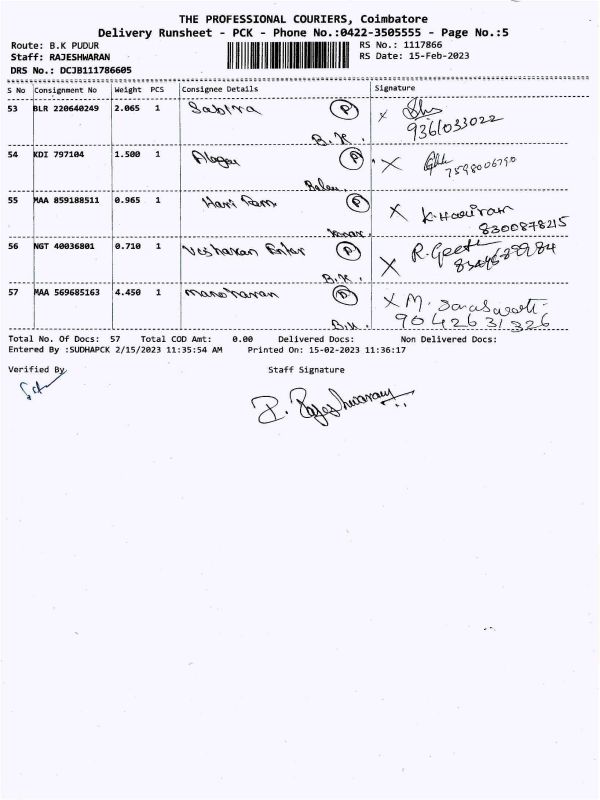 THE PROFESSIONAL COURIERS, Coimbatore
Delivery Runsheet - PCK - Phone No.:0422-3505555 - Page No.:5
Route: B.K PUDUR
RS No.: 1117866
Staff: RAJESHWARAN
RS Date: 15-Feb-2023
DRS No.: DCJB111786605
S No Consignment No Weight PCS Consignee Details Signature
53 BLR 220640249 2.065 1 Sabira P X
9361033022
B.K.
54 KDI 797104 1.500 1 P X
7598006790
55 MAA 859188511 0.965 1 Hari Ram P X K.Hariram
8300878215
56 NGT 40036801 0.710 1 P X R.Geeth
B.K.
57 MAA 569685163 4.450 1 manoharan P X M. Saraswathi
B.K. 9042631326
Total No. Of Docs: 57 Total COD Amt: 0.00 Delivered Docs: Non Delivered Docs:
Entered By :SUDHAPCK 2/15/2023 11:35:54 AM Printed On: 15-02-2023 11:36:17
Verified By Staff Signature
P. Rajeshwaran